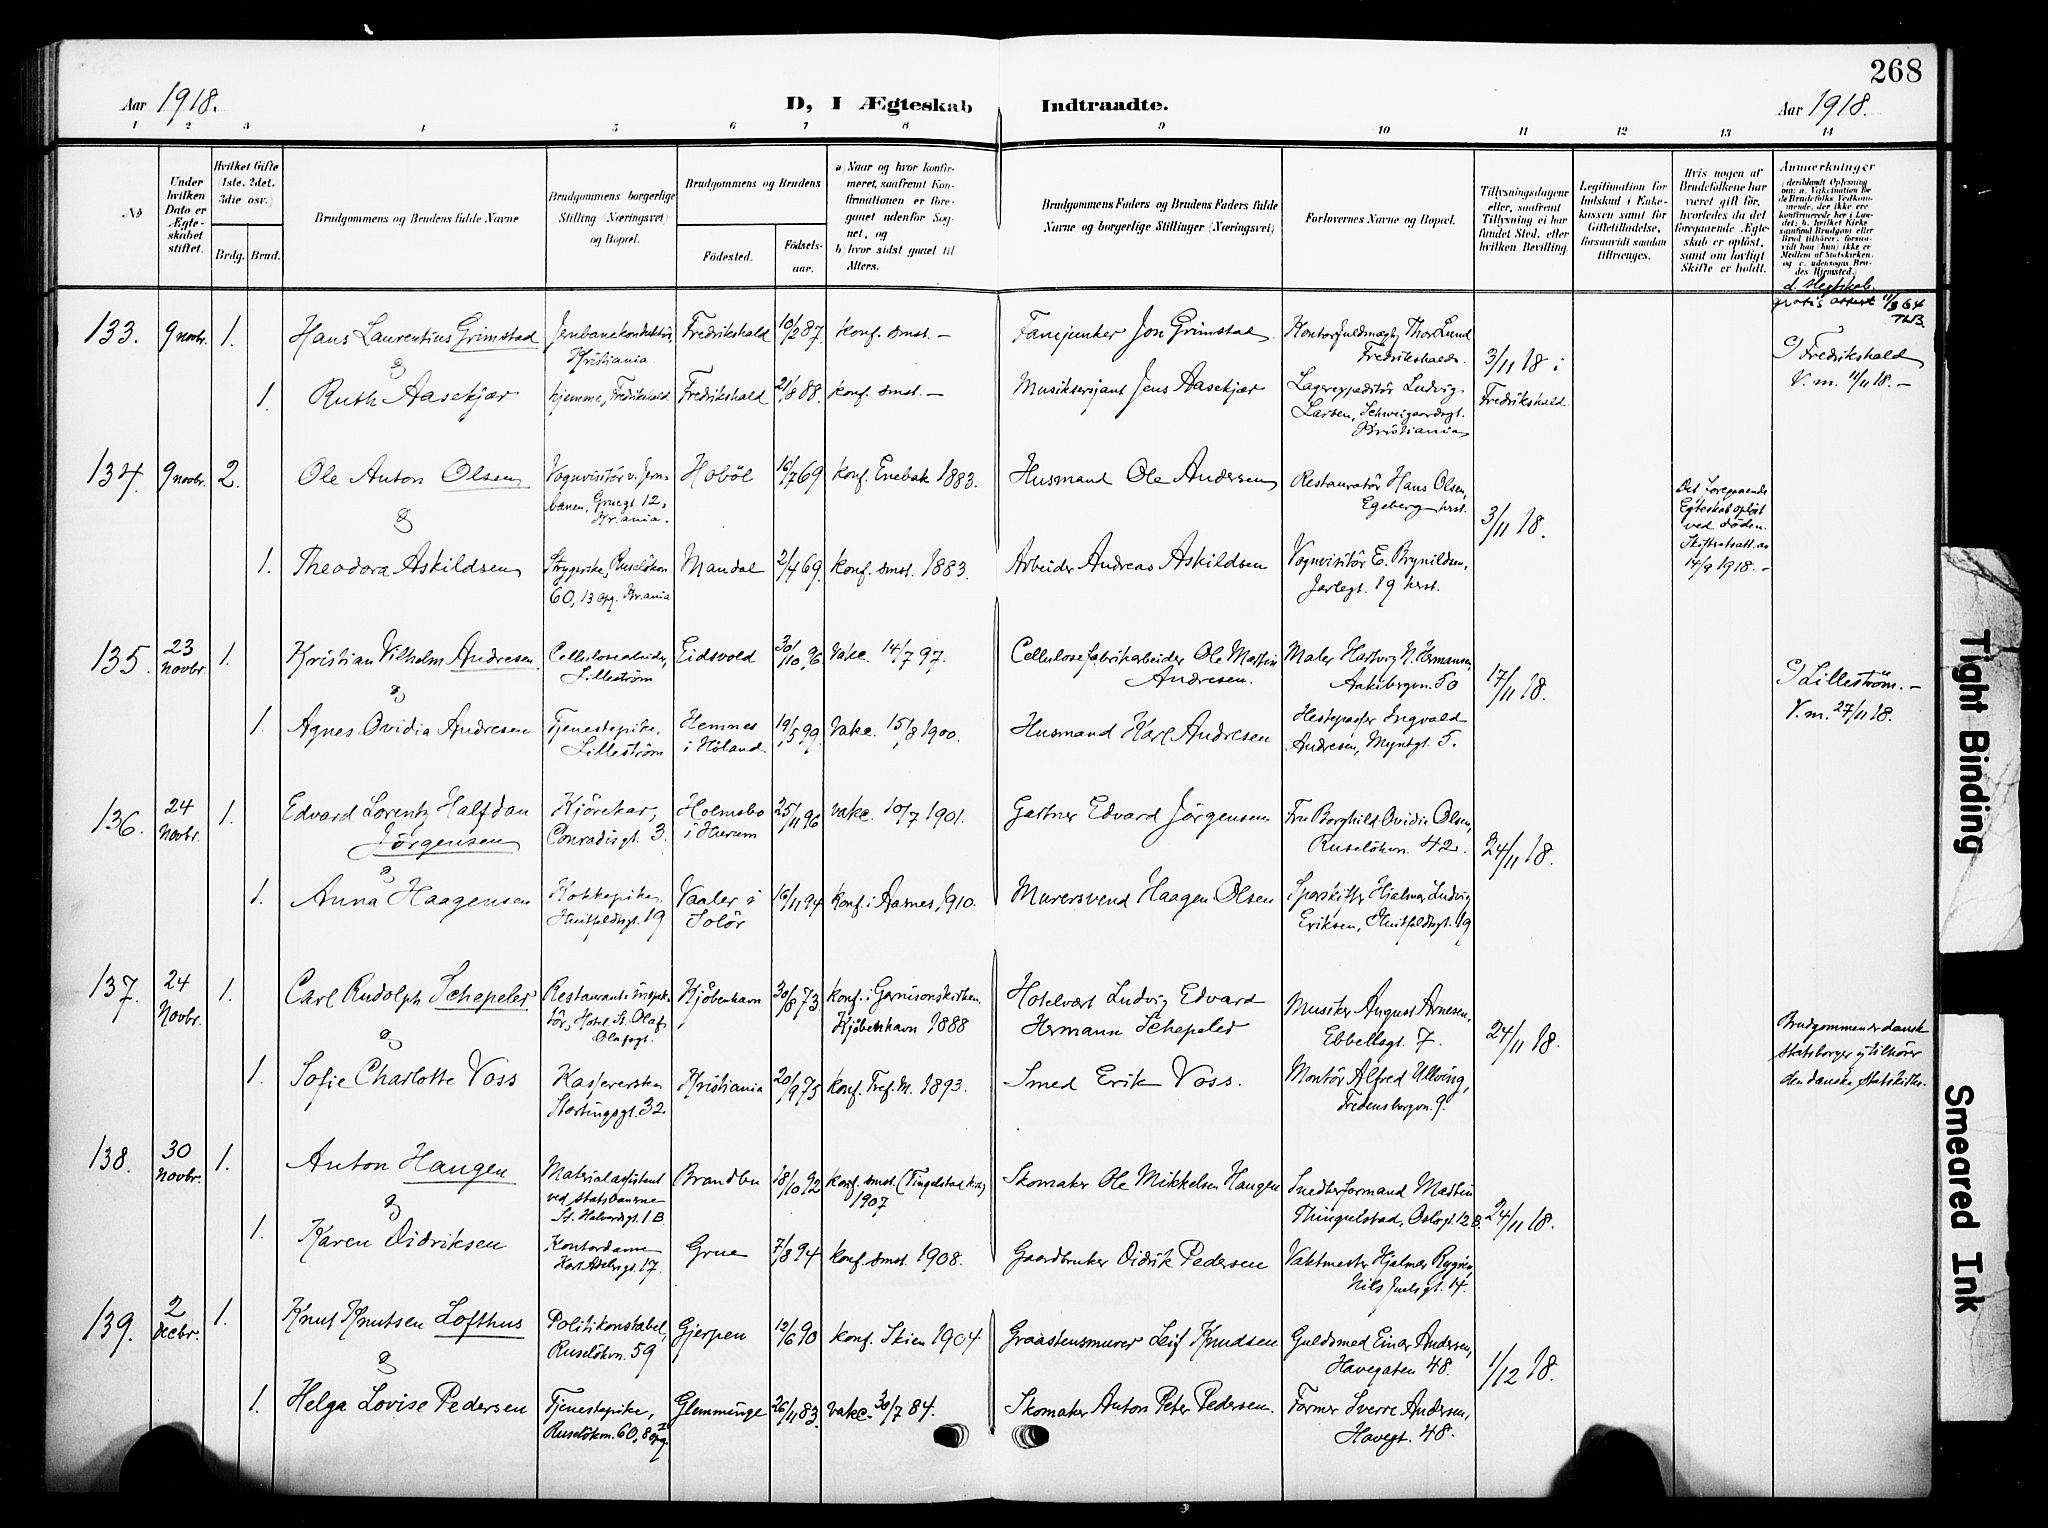 268
Aar 1918.
D, I Ægteskab Indtraadte.
Aar 1918.
1 2 3 4 5 6 7 8 9 10 11 12 13 14
No
Under hvilken Dato er Ægteskabet stiftet.
Hvilket Gifte (1ste, 2det, 3die osv.)
Brdg. Brud.
Brudgommens og Brudens fulde Navne
Brudgommens borgerlige Stilling (Næringsvei) og Bopæl.
Brudgommens og Brudens
Fødested.
Fødselsaar.
a) Naar og hvor konfirmeret, saafremt Konfirmationen er foregaaet udenfor Sognet, og
b) hvor sidst gaaet til Alters.
Brudgommens Faders og Brudens Faders fulde Navne og borgerlige Stillinger (Næringsvei)
Forlovernes Navne og Bopæl.
Tillysningsdagene eller, saafremt Tillysning ei har fundet Sted, efter hvilken Bevilling.
Legitimation for Indskud i Enkekassen samt for Giftetilladelse, forsaavidt saadan tiltrænges.
Hvis nogen af Brudefolkene har været gift før, hvorledes da det foregaaende Ægteskab er opløst, samt om lovligt Skifte er holdt.
Anmerkninger
(deriblandt Oplysning om: a. Vakcination for de Brudefolks Vedkommende, der ikke ere konfirmerede her i Landet; b. hvilket Kirkesamfund Brudgom eller Brud tilhører, forsaavidt han (hun) ikke er Medlem af Statskirken, og c. udensogns Brudes Hjemsted.)
133. 9 novbr. 1. Hans Laurentius Grimstad Jernbanekonduktör, Kristiania. Fredrikshald 10/2 87 konf. smst. – Fanejunker Jon Grimstad Kontorfuldmægtig Thor Lund Fredrikshald. 3/11 18 i Fredrikshald
&
1. Ruth Aasekjær hjemme, Fredrikshald Fredrikshald 2/8 88. konf. smst. – Musiksersjant Jens Aasekjær Lagerexpeditör Ludvig Larsen, Schweigaardsgt. Kristiania
c/ Fredrikshald
V. m. 11/11 18. –
134. 9 novbr. 2. Ole Anton Olsen Vognvisitör v. Jernbanen, Gruegt 12, Kr.ania. Hoböl 16/7 69 konf. Enebak 1883. Husmand Ole Andersen Restauratör Hans Olsen, Egeberg hrst. 3/11 18.
Det foregaaende Egteskab oplöst ved döden. Skifteratt. av 14/9 1918. –
&
1. Theodora Askildsen Strygerske, Ruselökvn 60, 13 opg. Kr.ania Mandal 2/4 69. konf. smst. 1883. Arbeider Andreas Askildsen Vognvisitör E. Brynildsen, Jarlegt. 19 hrst.
135. 23 novbr. 1. Kristian Vilhelm Andresen Cellulosearbeider, Lilleström Eidsvold 30/10 96 Vakc. 14/7 97. Cellulosefabrikarbeider Ole Martin Andresen. Maler Hartvig N. Hermansen, Aakebergvn. 50 17/11 18.
c/ Lilleström. –
V. m. 27/11 18.
&
1. Agnes Ovidia Andresen Tjenestepike, Lilleström Hemnes i Höland 19/5 99. Vakc. 15/8 1900. Husmand Karl Andresen Hestepasser Ingvald Andresen, Myntgt. 5.
136. 24 Novbr. 1. Edvard Lorentz Halfdan Jörgensen Kjörekar, Conradisgt. 3. Holmsbo i Hurum 25/11 96 vakc. 10/7 1901. Gartner Edvard Jörgensen Fru Borghild Ovidia Olsen, Ruselökvn. 42. 24/11 18.
&
1. Anna Haagensen Kokkepike, Huitfeldtsgt. 19 Vaaler i Solör 16/11 94 konf. i Aasnes, 1910. Murersvend Haagen Olsen Sporskifter Hjalmar Ludvig Eriksen, Huitfeldtsgt. 19
137. 24 Novbr. 1. Carl Rudolph Schepeler Restaurantsinspektör, Hotel St. Olaf, Olafsgt. Kjöbenhavn 30/8 73 konf. i Garnisonskirken, Kjöbenhavn 1888 Hotelvært Ludvig Edvard Hermann Schepeler Musiker August Arnesen, Ebbellsgt. 7. 24/11 18.
Brudgommen er dansk statsborger og tilhörer den danske statskirke.
&
1. Sofie Charlotte Voss Kassererske Stortingsgt. 32 Kristiania 20/9 75 konf. Tref. M. 1893. Smed Erik Voss. Montör Alfred Ullving, Fredensborgvn. 9.
138. 30 Novbr. 1. Anton Haugen Materialassistent ved statsbanerne St. Halvardsgt. 1 B Brandbu 18/10 92 konf. smst. (Tingelstad k.) 1907 Skomaker Ole Mikkelsen Haugen Snedkerformand Martin Thingelstad, Oslogt. 12 B. 24/11 18.
&
1. Karen Didriksen Kontordame 17. Grue 7/8 94 konf. smst. 1908. Gaardbruker Didrik Pedersen Vaktmester Hjalmar Nils Juelsgt. 14.
139. 2 Decbr. 1. Knut Knutsen Lofthus Politikonstabel, Ruselökvn. 59 Gjerpen 12/6 90 konf. Skien 1904 Graastensmurer Leif Knudsen Guldsmed Einar Andersen, Havegaten 48. 1/12 18.
&
1. Helga Lovise Pedersen Tjenestepike, Ruselökvn. 60, 8 opg. Glemminge 26/11 83. vakc. 30/7 84. Skomaker Anton Peter Pedersen. Former Sverre Andersen, Havegt. 48.
Tight Binding
Smeared Ink